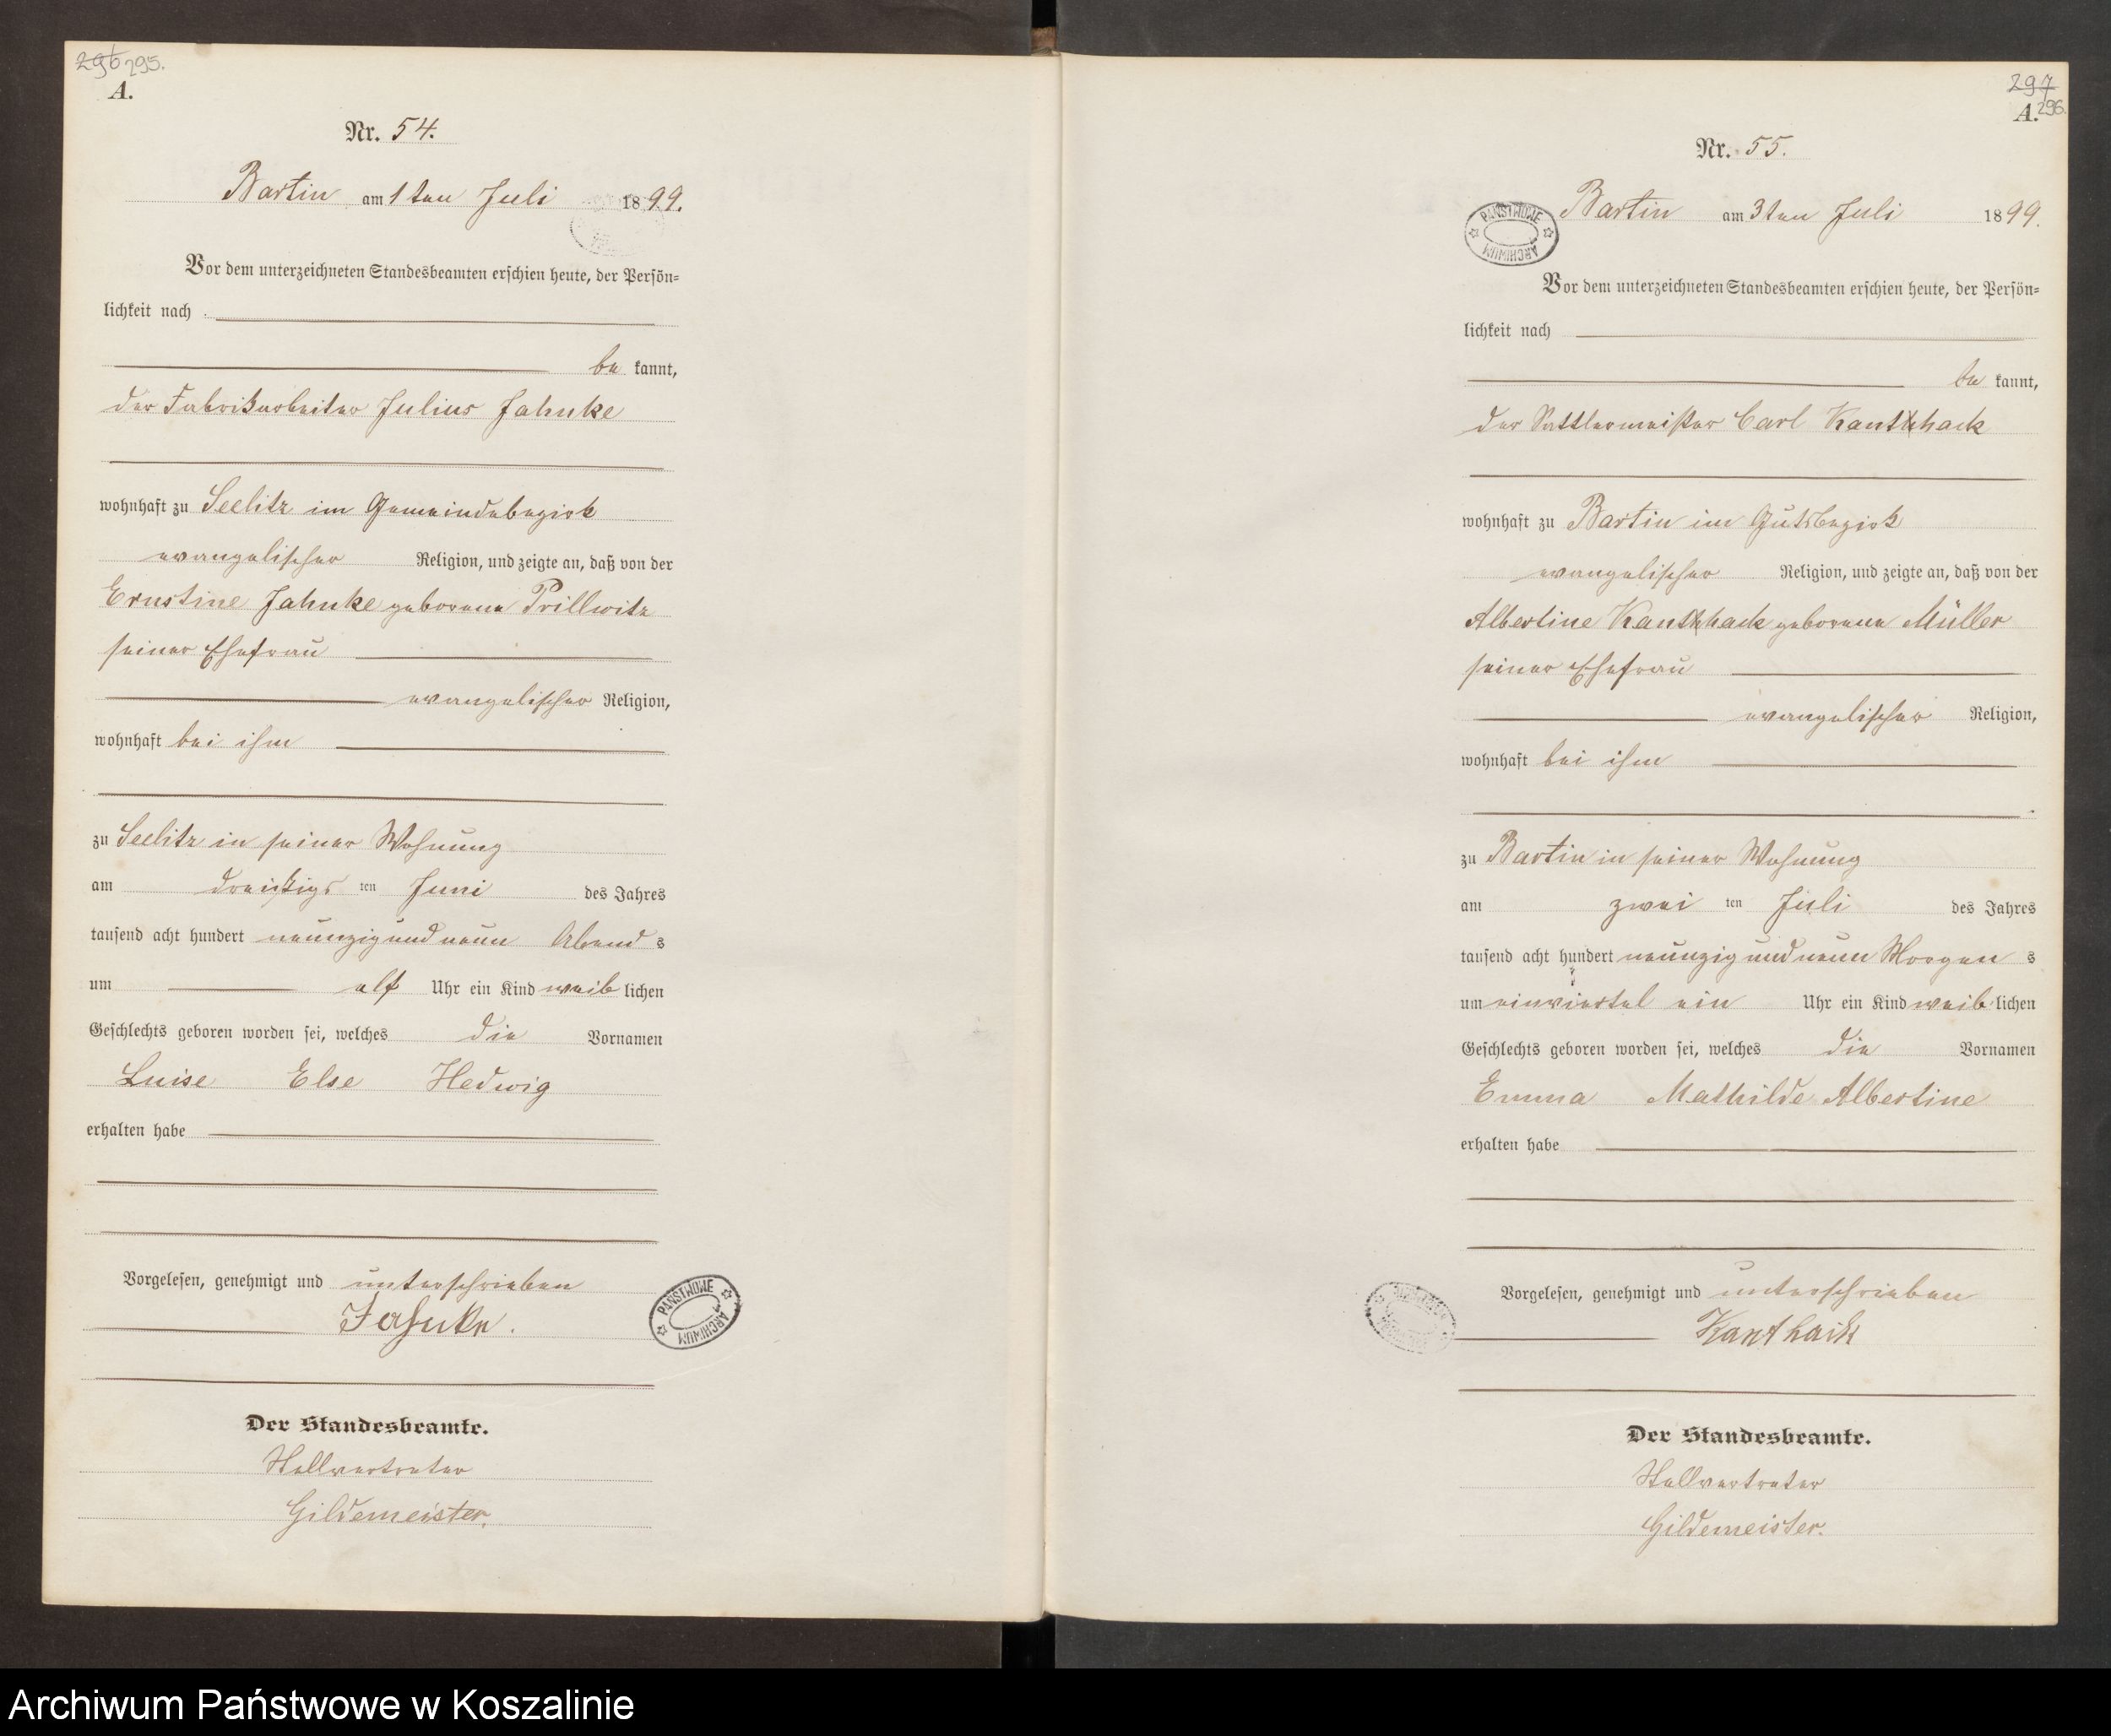 296 295.
A.
Nr. 54.
Bartin am 1ten Juli 1899.
Vor dem unterzeichneten Standesbeamten erschien heute, der Persön-
lichkeit nach
be kannt,
der Fabrikarbeiter Julius Jahnke
wohnhaft zu Seelitz im Gemeindebezirk
evangelischer Religion, und zeigte an, daß von der
Ernstine Jahnke geborene Prillwitz
seiner Ehefrau
evangelischer Religion,
wohnhaft bei ihm
zu Seelitz in seiner Wohnung
am dreißigs ten Juni des Jahres
tausend acht hundert neunzig und neun Abend s
um elf Uhr ein Kind weib lichen
Geschlechts geboren worden sei, welches die Vornamen
Luise Else Hedwig
erhalten habe
Vorgelesen, genehmigt und unterschrieben
Jahnke.
PAŃSTWOWE ARCHIWUM
Der Standesbeamte.
Stellvertreter
Gildemeister.
297
A. 296.
Nr. 55.
PAŃSTWOWE ARCHIWUM
Bartin am 3ten Juli 1899.
Vor dem unterzeichneten Standesbeamten erschien heute, der Persön-
lichkeit nach
be kannt,
der Sattlermeister Carl Kantkhack
wohnhaft zu Bartin im Gutsbezirk
evangelischer Religion, und zeigte an, daß von der
Albertine Kantkhack geborene Müller
seiner Ehefrau
evangelischer Religion,
wohnhaft bei ihm
zu Bartin in seiner Wohnung
am zwei ten Juli des Jahres
tausend acht hundert neunzig und neun Morgen s
um einviertel ein Uhr ein Kind weib lichen
Geschlechts geboren worden sei, welches die Vornamen
Emma Mathilde Albertine
erhalten habe
Vorgelesen, genehmigt und unterschrieben
Kanthack
Der Standesbeamte.
Stellvertreter
Gildemeister.
Archiwum Państwowe w Koszalinie